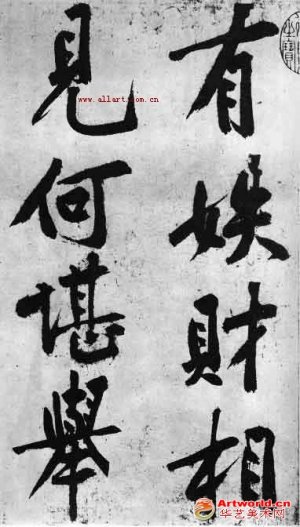 有財相
見何堪舉
www.allart.com.cn
Artworld.cn
华艺美术网